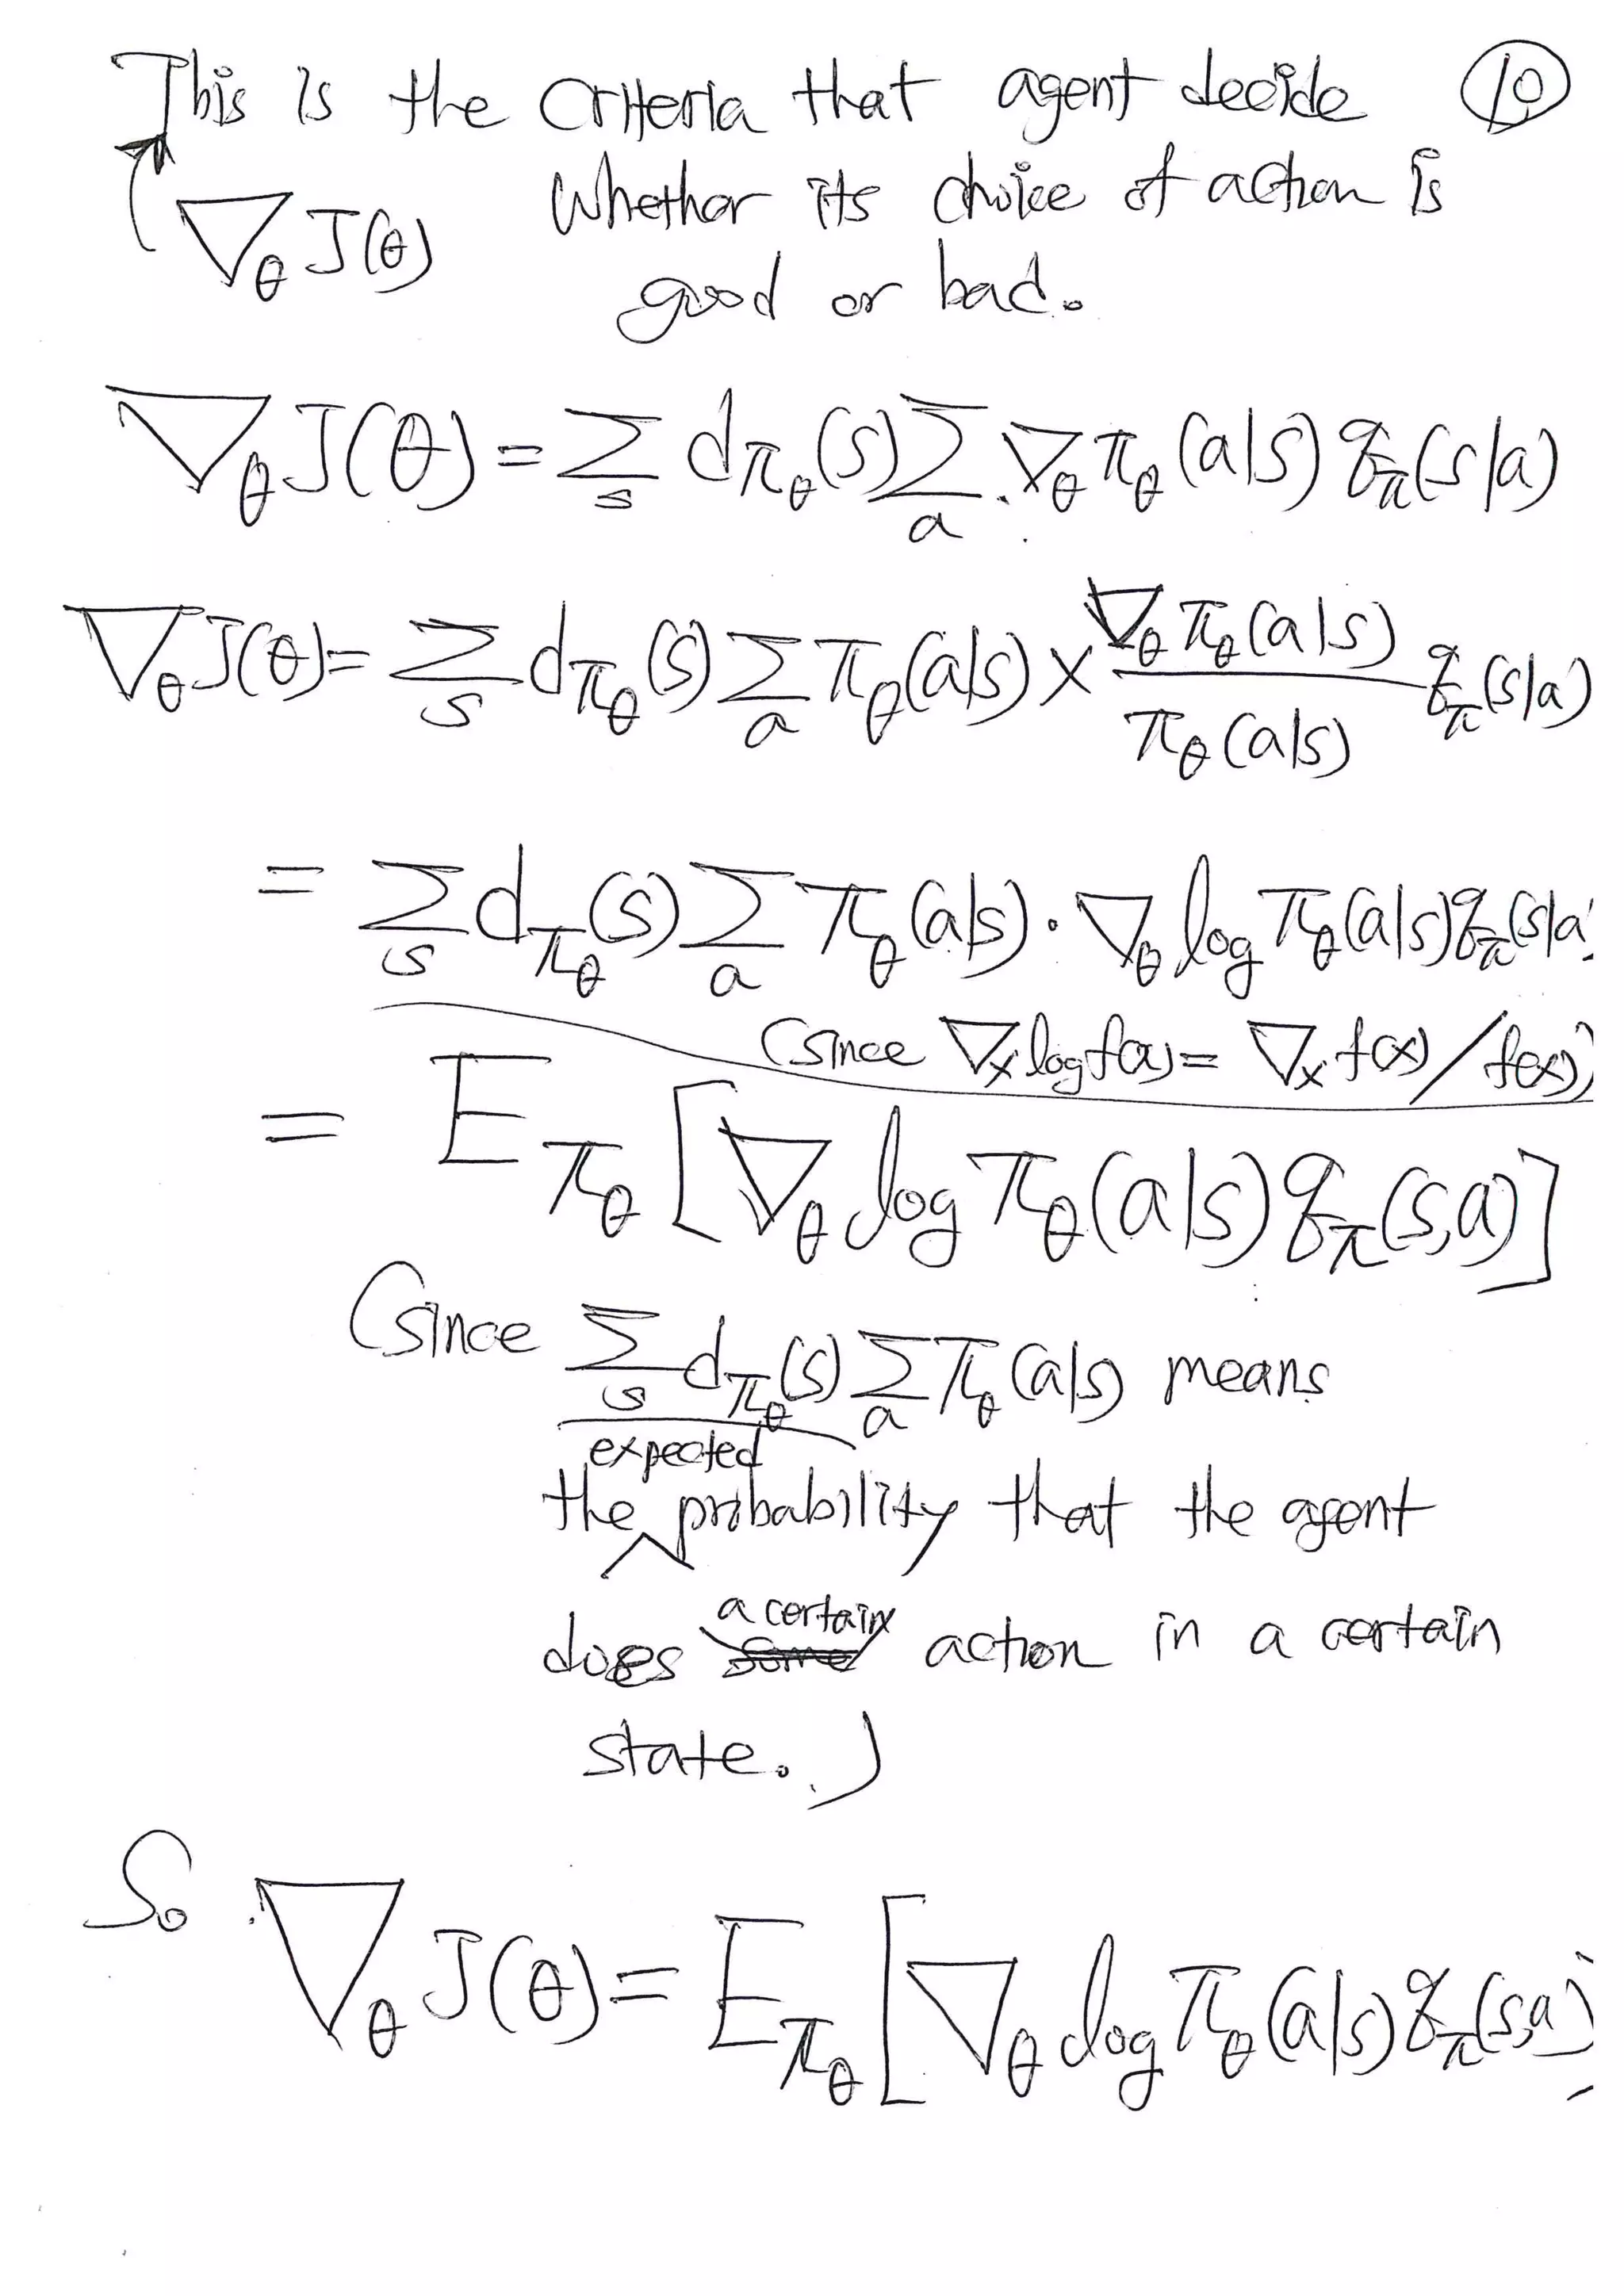 This is the criteria that agent decide ⑩
∇θ J(θ) whether its choice of action is
good or bad.
∇θ J(θ) = Σs dπθ(s) Σa ∇θ πθ(a|s) qπ(s|a)
∇θ J(θ) = Σs dπθ(s) Σa πθ(a|s) × ∇θ πθ(a|s) / πθ(a|s) qπ(s|a)
= Σs dπθ(s) Σa πθ(a|s) · ∇θ log πθ(a|s) qπ(s|a)
(since ∇x log f(x) = ∇x f(x) / f(x))
= Eπθ [∇θ log πθ(a|s) qπ(s,a)]
(since Σs dπθ(s) Σa πθ(a|s) means
the expected probability that the agent
does a certain action in a certain
state.)
So ∇θ J(θ) = Eπθ [∇θ log πθ(a|s) qπ(s,a)